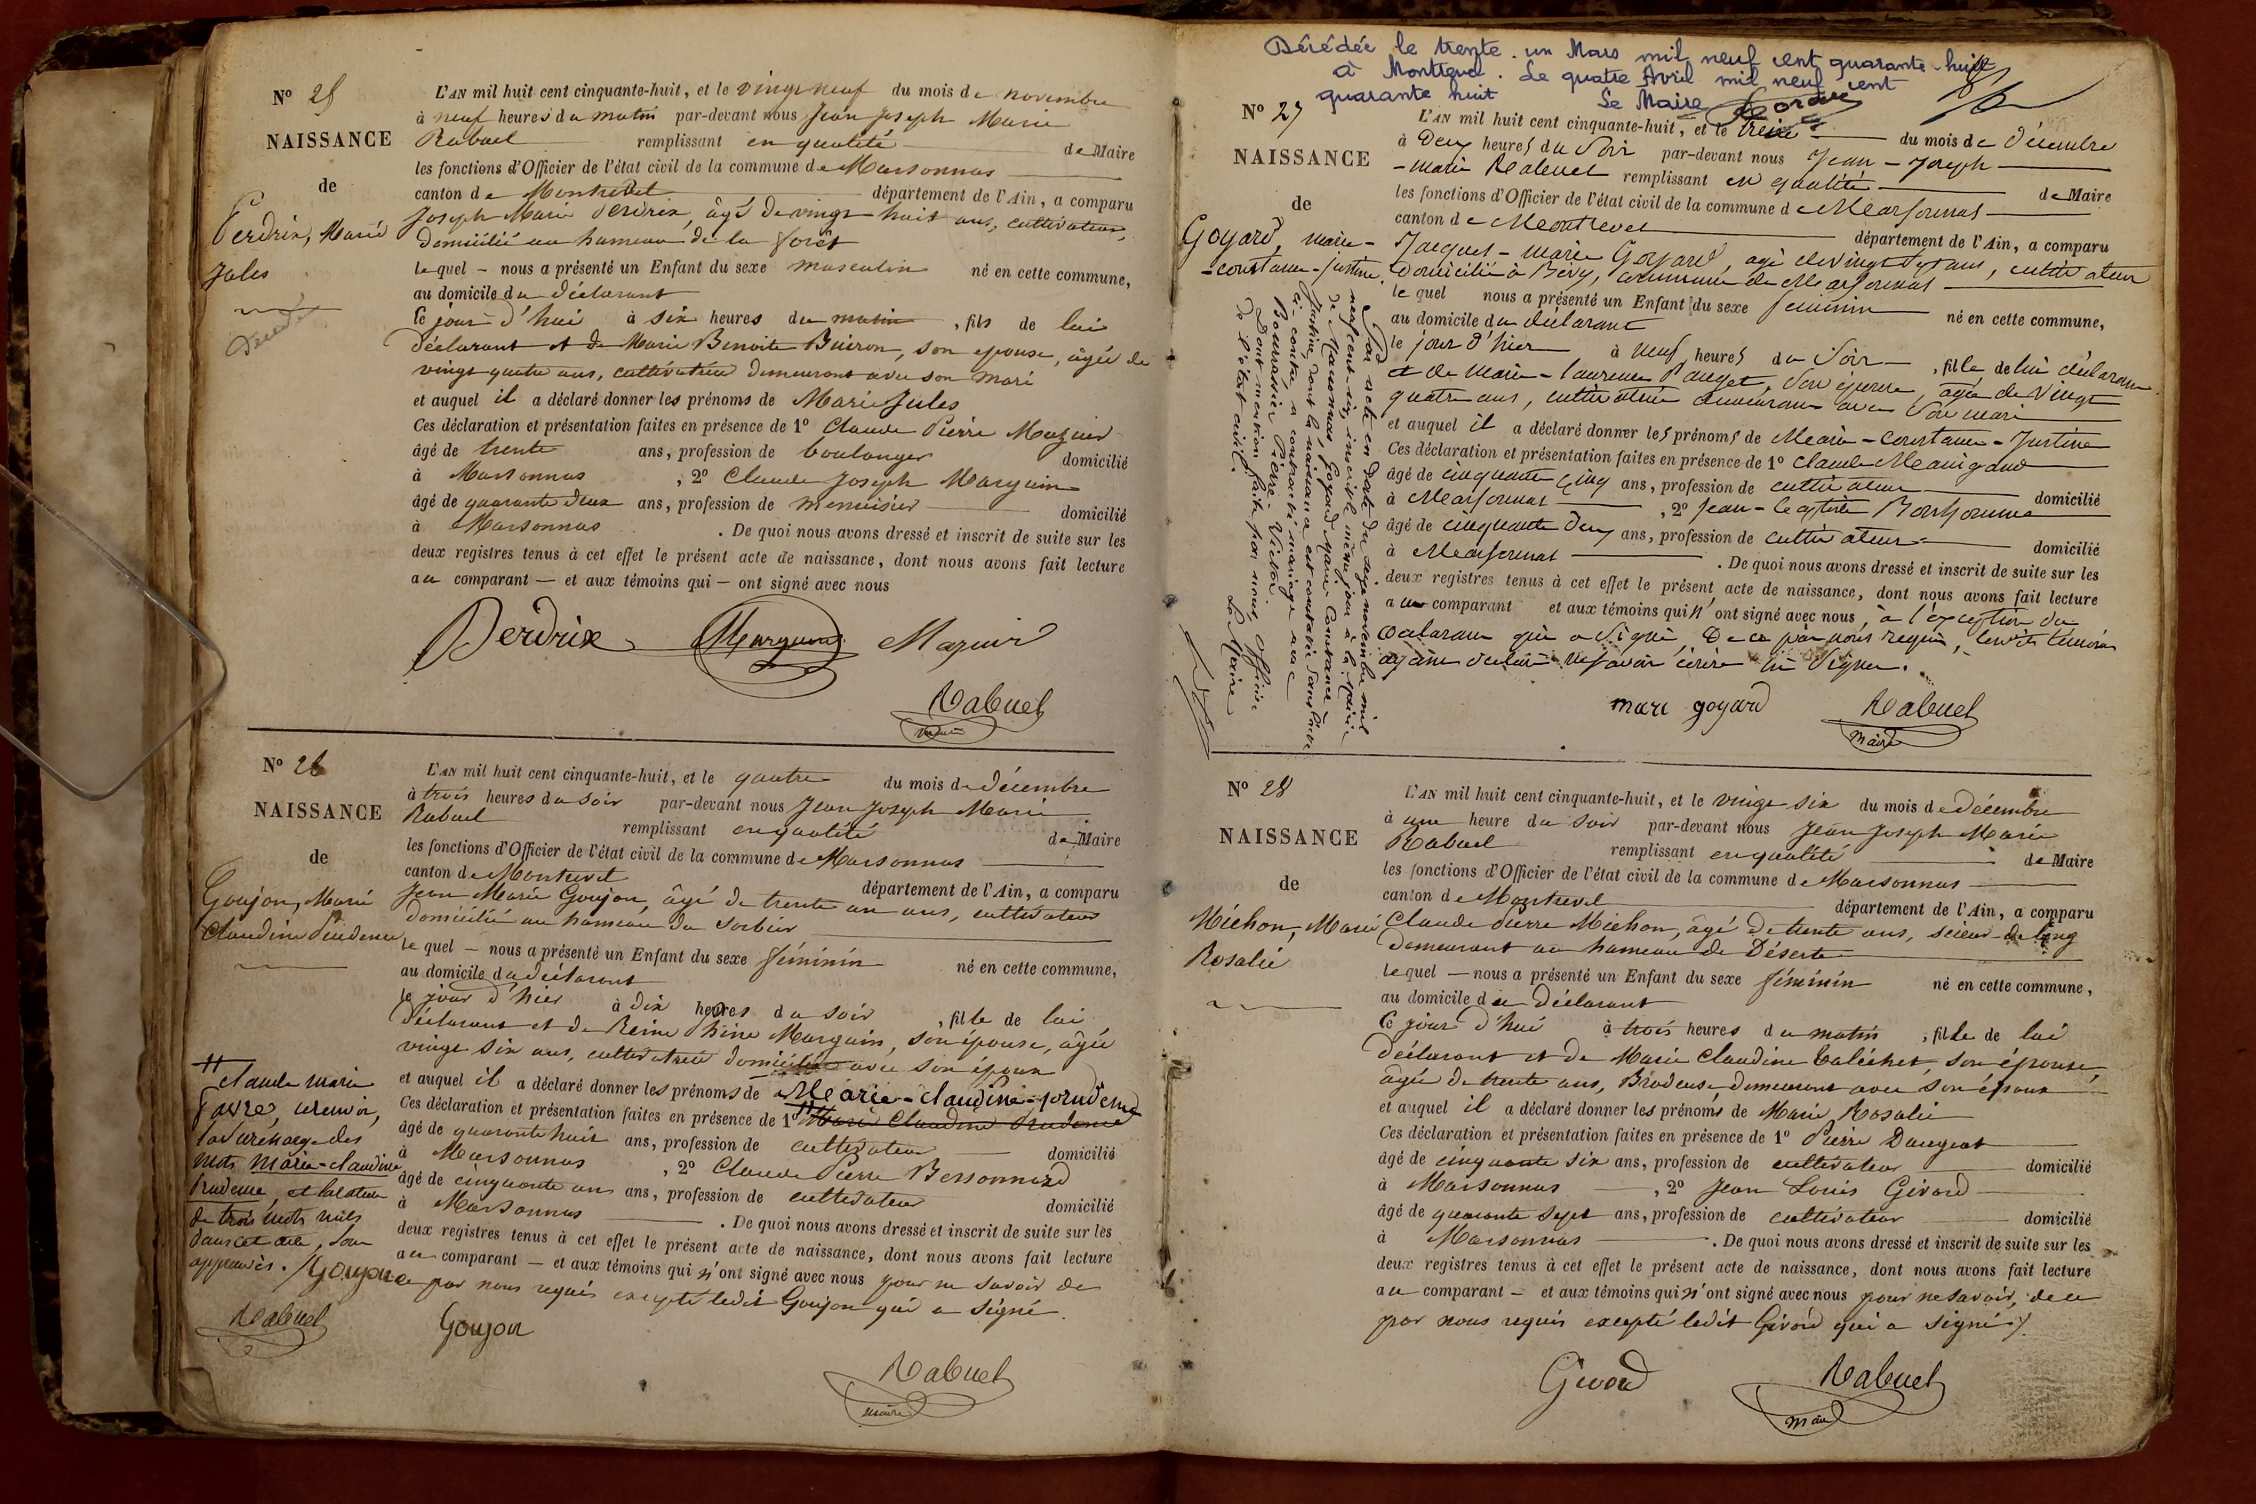 N° 25
NAISSANCE
de
Perdrix, Marie
Jules
Décédé
L'AN mil huit cent cinquante-huit, et le vingt neuf du mois de novembre
à neuf heures du matin par-devant nous Jean Joseph Marie
Rabuel remplissant en qualité de Maire
les fonctions d'Officier de l'état civil de la commune de Marsonnas
canton de Montrevel département de l'Ain, a comparu
Joseph Marie Perdrix, âgé de vingt huit ans, cultivateur,
domicilié au hameau de la forêt
lequel – nous a présenté un Enfant du sexe masculin né en cette commune,
au domicile du déclarant
le jour d'hui à six heures du matin, fils de lui
déclarant et de Marie Benoite Buiron, son epouse, âgée de
vingt quatre ans, cultivatrice demeurant avec son mari
et auquel il a déclaré donner les prénoms de Marie Jules
Ces déclaration et présentation faites en présence de 1° Claude Pierre Mazuir
âgé de trente ans, profession de boulanger domicilié
à Marsonnas, 2° Claude Joseph Marguin
âgé de quarante deux ans, profession de menuisier domicilié
à Marsonnas. De quoi nous avons dressé et inscrit de suite sur les
deux registres tenus à cet effet le présent acte de naissance, dont nous avons fait lecture
au comparant — et aux témoins qui — ont signé avec nous
Perdrix Marguin Mazuir
Rabuel
maire
N° 26
NAISSANCE
de
Goujon, Marie
Claudine Prudence
L'AN mil huit cent cinquante-huit, et le quatre du mois de décembre
à trois heures du soir par-devant nous Jean Joseph Marie
Rabuel remplissant en qualité de Maire
les fonctions d'Officier de l'état civil de la commune de Marsonnas
canton de Montrevel département de l'Ain, a comparu
Jean Marie Goujon, âgé de trente un ans, cultivateur
domicilié au hameau du Sorbier
lequel – nous a présenté un Enfant du sexe féminin né en cette commune,
au domicile du déclarant
le jour d'hier à dix heures du soir, fille de lui
déclarant et de Reine Marguin, son épouse, âgée
vingt six ans, cultivatrice domiciliée avec son époux
et auquel il a déclaré donner les prénoms de Marie-Claudine-prudence
Ces déclaration et présentation faites en présence de 1° Marie Claudine Prudence
âgé de quarante huit ans, profession de cultivateur domicilié
à Marsonnas, 2° Claude Pierre Bessonnard
âgé de cinquante un ans, profession de cultivateur domicilié
à Marsonnas. De quoi nous avons dressé et inscrit de suite sur les
deux registres tenus à cet effet le présent acte de naissance, dont nous avons fait lecture
au comparant — et aux témoins qui n'ont signé avec nous pour ne savoir de
ce par nous requis excepté ledit Goujon qui a signé.
Claude marie
favre, renvoi,
la surcharge des
mots Marie-claudine
Prudence, et la rature
de trois mots nuls
dans cet acte, sont
approuvés. Goujon
Rabuel
Goujon
Rabuel
maire
Décédée le trente-un Mars mil neuf cent quarante-huit
à Montrevel. Le quatre Avril mil neuf cent
quarante huit Le Maire
N° 27
NAISSANCE
de
Goyard, marie-
-constance-justine.
L'AN mil huit cent cinquante-huit, et le treize du mois de décembre
à deux heures du Soir par-devant nous Jean-Joseph
-marie Rabuel remplissant en qualité de Maire
les fonctions d'Officier de l'état civil de la commune de Marsonnas
canton de Montrevel département de l'Ain, a comparu
Jacques-marie Goyard, agé de vingt sept ans, cultivateur
domicilié à Bévy, commune de Marsonnas
lequel nous a présenté un Enfant du sexe féminin né en cette commune,
au domicile du déclarant
le jour d'hier à neuf heures du Soir, fille de lui déclarant
et de marie-laurence Pauget, son épouse, agée de vingt
quatre ans, cultivatrice demeurant avec son mari
et auquel il a déclaré donner les prénoms de Marie-constance-Justine
Ces déclaration et présentation faites en présence de 1° Claude Meanigand
âgé de cinquante cinq ans, profession de cultivateur domicilié
à Marsonnas, 2° Jean-Baptiste Bonhomme
âgé de cinquante deux ans, profession de cultivateur domicilié
à Marsonnas. De quoi nous avons dressé et inscrit de suite sur les
deux registres tenus à cet effet le présent acte de naissance, dont nous avons fait lecture
au comparant et aux témoins qui n'ont signé avec nous, à l'exception du
déclarant qui a signé, de ce par nous requis, lesdits témoins
ayant déclaré ne savoir écrire ni signer.
Par acte en date du seize novembre mil
neuf cent six, inscrit le même jour à la mairie
de Marsonnas, Goyard Marie Constance
Justine, dont la naissance est constatée dans l'acte
ci-contre a contracté mariage avec
Bourassin Pierre Victor.
Dont mention faite par nous, Officier
de l'état civil. Le Maire
marc goyard Rabuel
maire
N° 28
NAISSANCE
de
Michon, Marie
Rosalie
L'AN mil huit cent cinquante-huit, et le vingt six du mois de décembre
à une heure du soir par-devant nous Jean Joseph Marie
Rabuel remplissant en qualité de Maire
les fonctions d'Officier de l'état civil de la commune de Marsonnas
canton de Montrevel département de l'Ain, a comparu
Claude Pierre Michon, âgé de trente ans, scieur de long
demeurant au hameau de Déserte
lequel — nous a présenté un Enfant du sexe féminin né en cette commune,
au domicile du déclarant
Ce jour d'hui à trois heures du matin, fille de lui
déclarant et de Marie Claudine Caléchet, son épouse,
âgée de trente ans, Brodeuse demeurant avec son époux
et auquel il a déclaré donner les prénoms de Marie Rosalie
Ces déclaration et présentation faites en présence de 1° Pierre Daugeat
âgé de cinquante six ans, profession de cultivateur domicilié
à Marsonnas, 2° Jean Louis Givord
âgé de quarante sept ans, profession de cultivateur domicilié
à Marsonnas. De quoi nous avons dressé et inscrit de suite sur les
deux registres tenus à cet effet le présent acte de naissance, dont nous avons fait lecture
au comparant — et aux témoins qui n'ont signé avec nous pour ne savoir, de ce
par nous requis excepté ledit Givord qui a signé
Givord Rabuel
maire